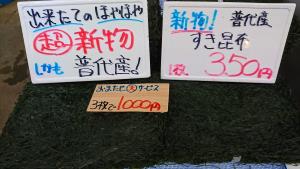 出来たてのほやほや
超新物
しかも普代産!
新物! 普代産
すき昆布
1枚 350円
おまたせ大サービス
3枚で1000円